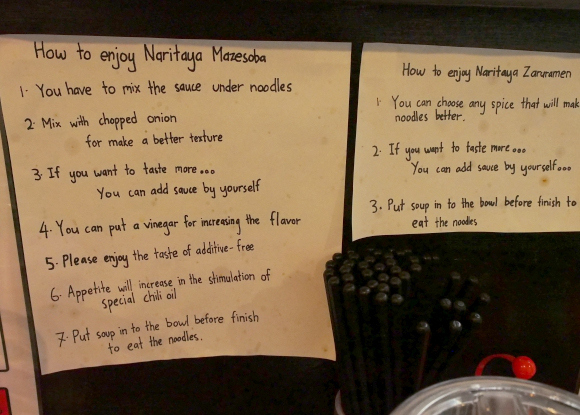 How to enjoy Naritaya Mazesoba
1. You have to mix the sauce under noodles
2. Mix with chopped onion
for make a better texture
3. If you want to taste more...
You can add sauce by yourself
4. You can put a vinegar for increasing the flavor
5. Please enjoy the taste of additive-free
6. Appetite will increase in the stimulation of
special chili oil
7. Put soup in to the bowl before finish
to eat the noodles.
How to enjoy Naritaya Zaruramen
1. You can choose any spice that will mak
noodles better.
2. If you want to taste more...
You can add sauce by yourself...
3. Put soup in to the bowl before finish to
eat the noodles